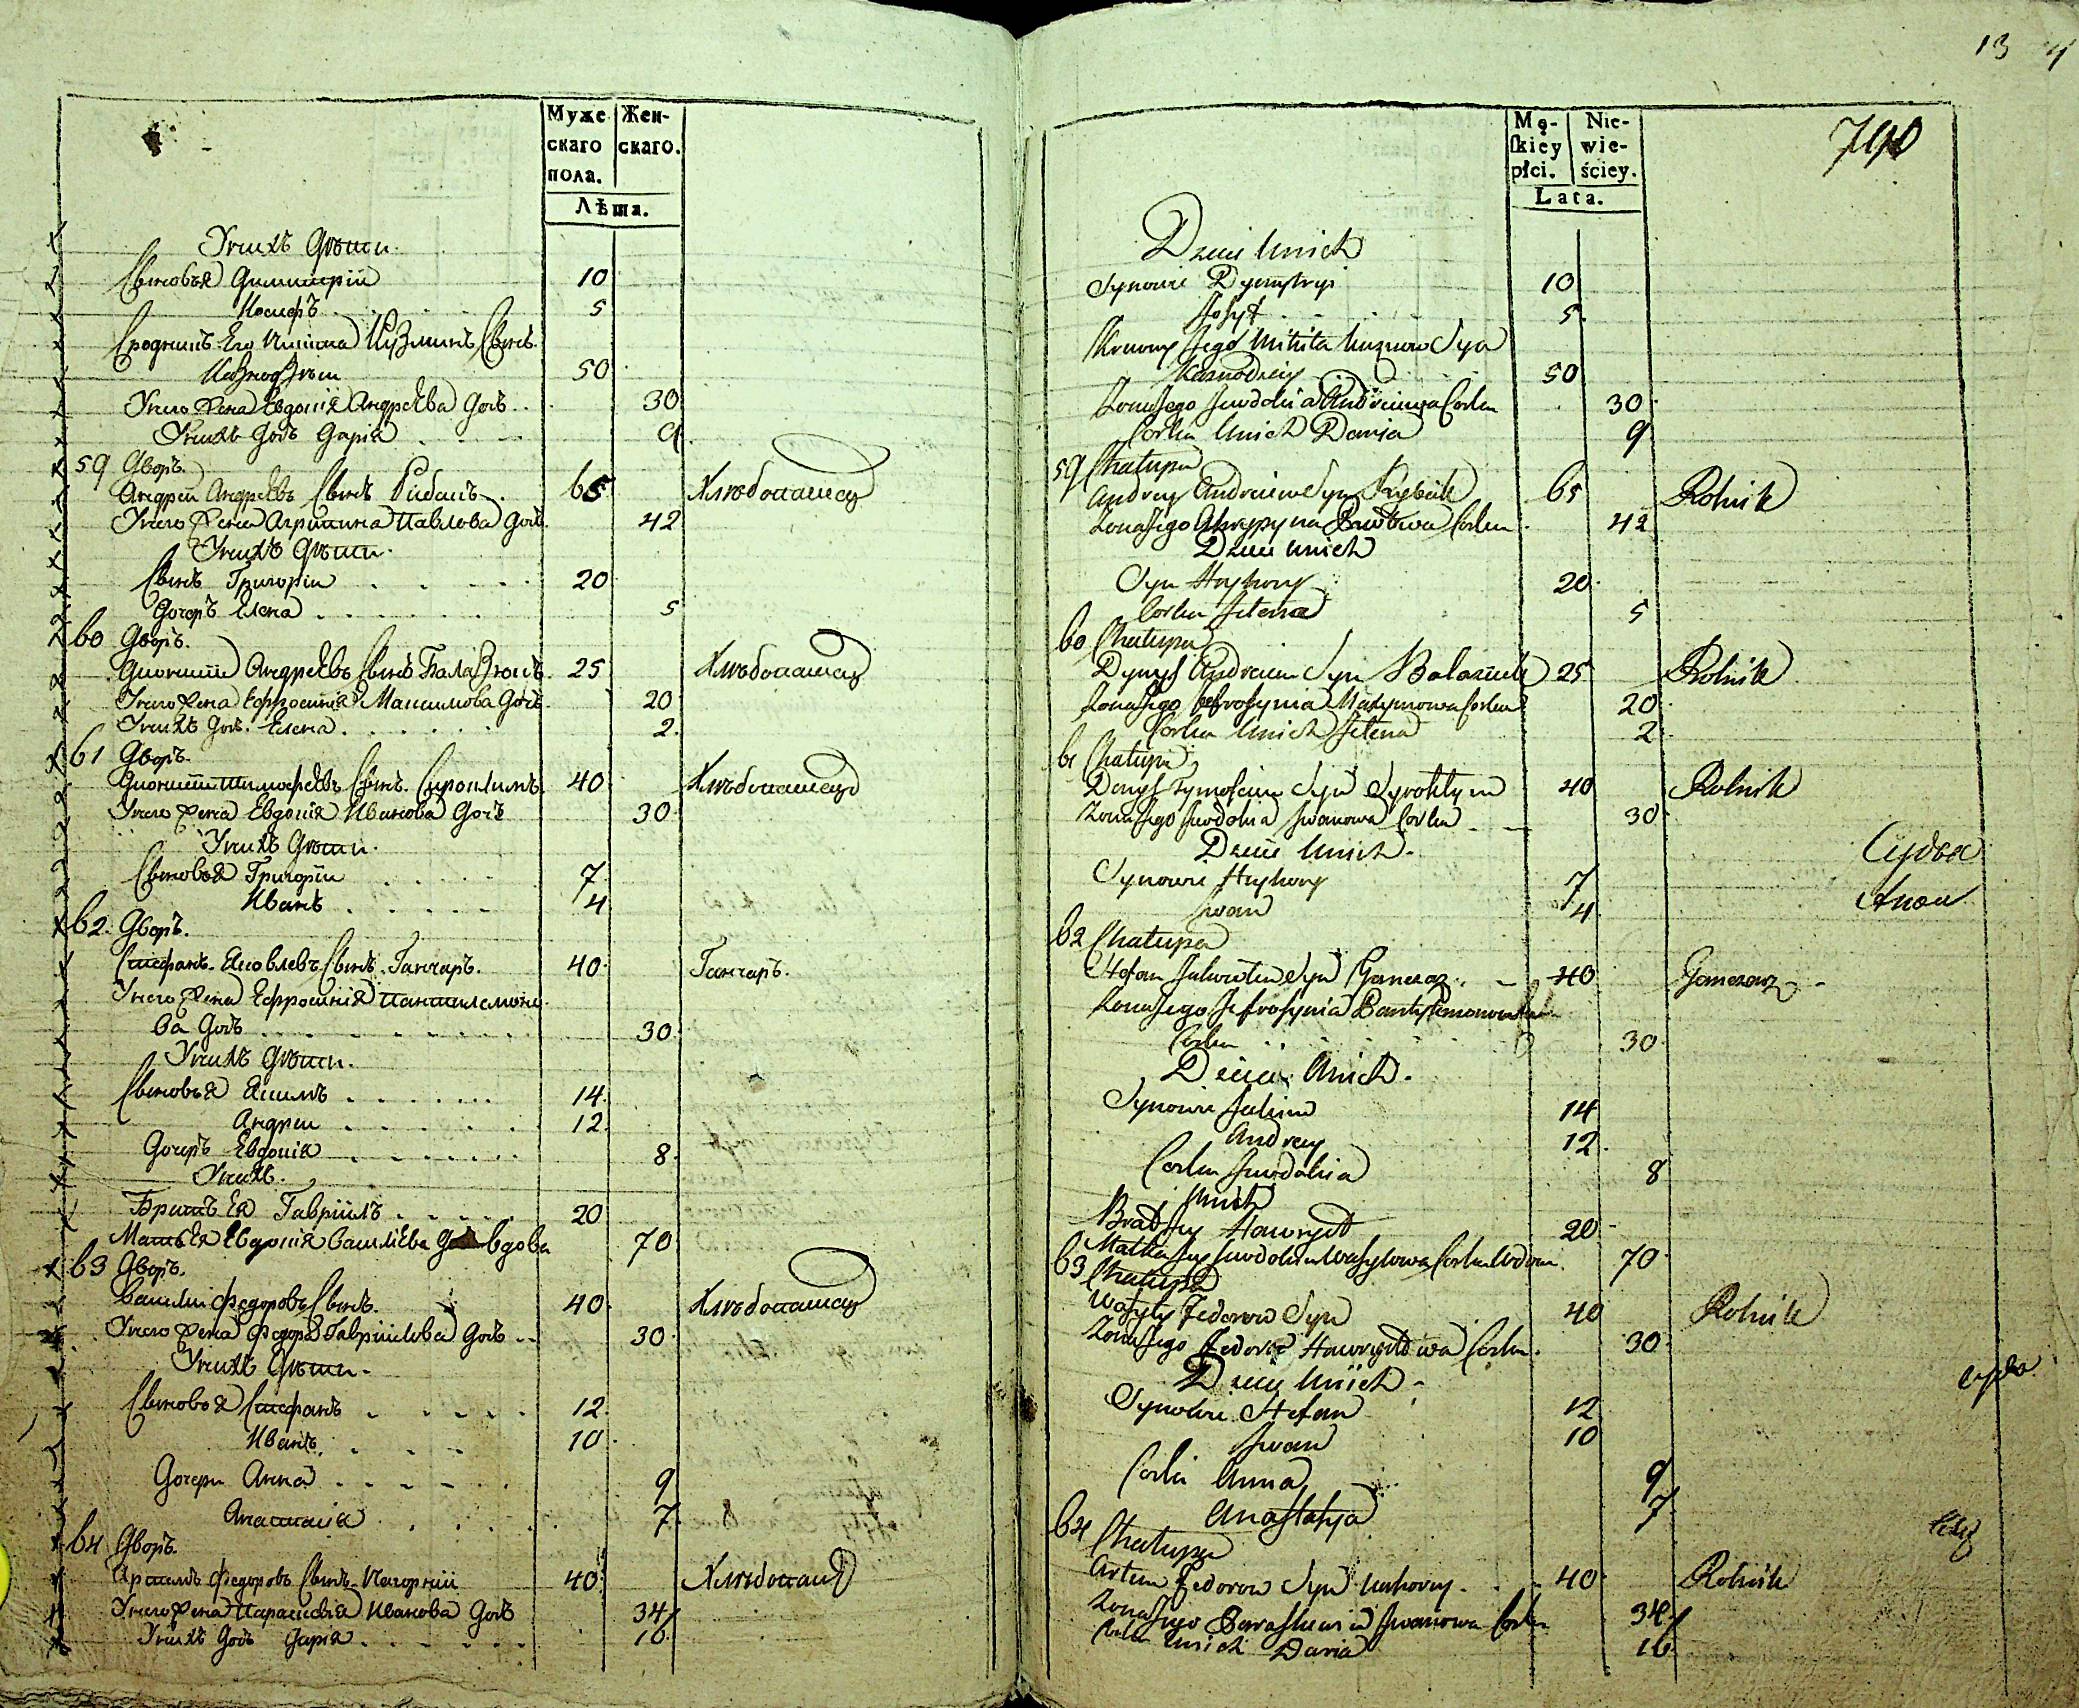 Муже
скаго
пола.
Жен-
скаго.
Лѣта.
У нихъ Дѣти.
Сыновья Димитрій 10
Иосифъ 5
Сродникъ Его Никита Кузминъ Сынъ.
Казнодзѣи 50
У него Жена Евдокія Андрѣева Дочь 30
У нихъ Дочь Дарія 9
59 Дворъ.
Андрей Андрѣевъ Сынъ Рибакъ 65 Хлѣбопашец
У него Жена Агрипина Павлова Дочь. 42
У нихъ Дѣти.
Сынъ Григорій 20
Дочерь Елена 5
60 Дворъ.
ДиониSій Андрѣевъ Сынъ Балазюкъ 25 Хлѣбопашец
У него Жена Ефросинія Максимова Дочь. 20
У нихъ Дочь. Елена 2.
61 Дворъ.
Дионисій Тимофѣевъ Сынъ. Сироклимъ 40 Хлѣбопашец
У него Жена Евдокія Иванова Дочь 30
У нихъ Дѣти.
Сыновья Григорій 7
Иванъ 4
62. Дворъ.
Стефанъ Яковлевъ Сынъ. Ганчаръ. 40 Ганчаръ.
У него Жена Ефросинія Пантилемоно-
ва Дочь 30
У нихъ Дѣти.
Сыновья Якимъ 14.
Андрей 12.
Дочерь Евдокія 8.
У нихъ.
Братъ Ея Гавріилъ 20
Мать Ея Евдокія Василіева Дочь вдова 70
63 Дворъ.
Василій Федоровъ Сынъ. 40 Хлѣбопашец
У него Жена Федора Гавріилова Дочь 30
У нихъ Дѣти.
Сыновья Стефанъ 12.
Иванъ 10
Дочери Анна 9
Анастасія 7.
64 Дворъ.
Артемъ Федоровъ Сынъ Нагорній 40 Хлѣбопаш
У него Жена Параскевія Иванова Дочь 34
У нихъ Дочь Дарія 16
13
790
Mę-
skiey
płci.
Nie-
wie-
ściey.
Lata.
Dzieci Unich
Synowie Dymytryi 10
Josyf 5.
Krewny Jego Mikita Kuzmow Syn
Kaznodziey 50
Zona Jego Jewdokia Andreiewa Corka 30
Corka Unich Darija 9
59 Chatupa
Andrey Andreiew Syn Rybak 65 Rolnik
Zona Jego Ahrypyna Pawłowa Corka. 42
Dzieci Unich
Syn Hryhory 20
Corka Jelena 5
60 Chatupa
Dynys Andreiew Syn Balaziuk 25 Rolnik
Zona Jego Jefrosynia Maxymowa Corka 20
Corka Unich Jelena 2
61 Chatupa
Denys Tymofeiew Syn Syroklym 40 Rolnik
Zona Jego Jewdokia Iwanowa Corka 30
Dzieci Unich.
Synowie Hryhory 7
Iwan 4
62 Chatupa
Stefan Jakowlew Syn Ganczar 40 Ganczarz
Zona Jego Jefrosynia Pantylemonowa
Corka 30
Dzieci Unich.
Synowie Jakim 14
Andrey 12.
Corka Jewdokia 8
Unich
Brat Jey Hawryło 20
Matka Jey Jewdokia Wasylowa Corka Wdowa. 70
63 Chatupa
Wasyly Fedorow Syn 40 Rolnik
Zona Jego Fedora Hawryłowa Corka. 30
Dzieci Unich
Synowie Stefan 12
Iwan 10
Corki Anna 9
Anastasya 7
64 Chatupa
Artem Fedorow Syn Nahorny. 40 Rolnik
Zona Jego Paraskewia Iwanowa Corka 34
Corka Unich Daria 16